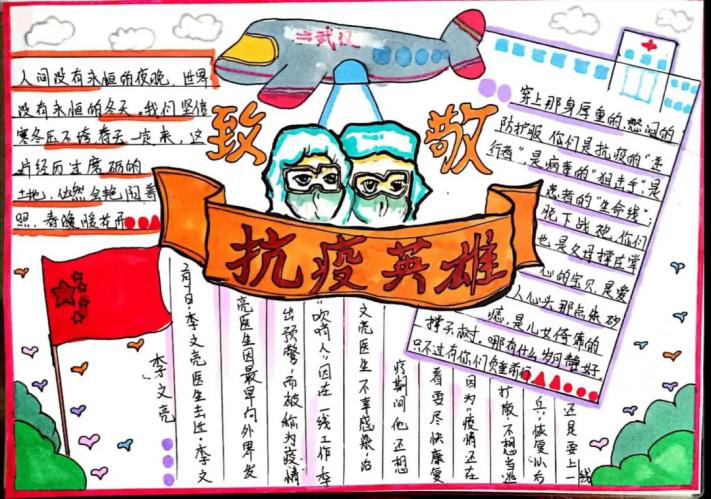 武汉
致敬
抗疫英雄
人间没有永恒的夜晚,世界
没有永恒的冬天。我们坚信
寒冬压不垮春天一定来,这
片经历过磨砺的
土地,依然会艳阳普
照,春暖花开
穿上那身厚重的,憋闷的
防护服,你们是抗疫的"逆
行者"是病毒的"狙击手"是
患者的"生命线";
脱下战袍,你们
也是父母捧在掌
心的宝贝,是爱
人心头那点朱砂
痣,是儿女倚靠的
撑天树。哪有什么岁月静好,
只不过有你们负重前行
李文亮
2月7日,李文亮医生去世,李文
亮医生因最早向外界发
出预警,而被称为疫情
"吹哨人"因在一线工作,李
文亮医生不幸感染,治
疗期间他还想
着要尽快康复
因为"疫情还在
扩散不想当逃
兵,恢复以后
还是要上一线